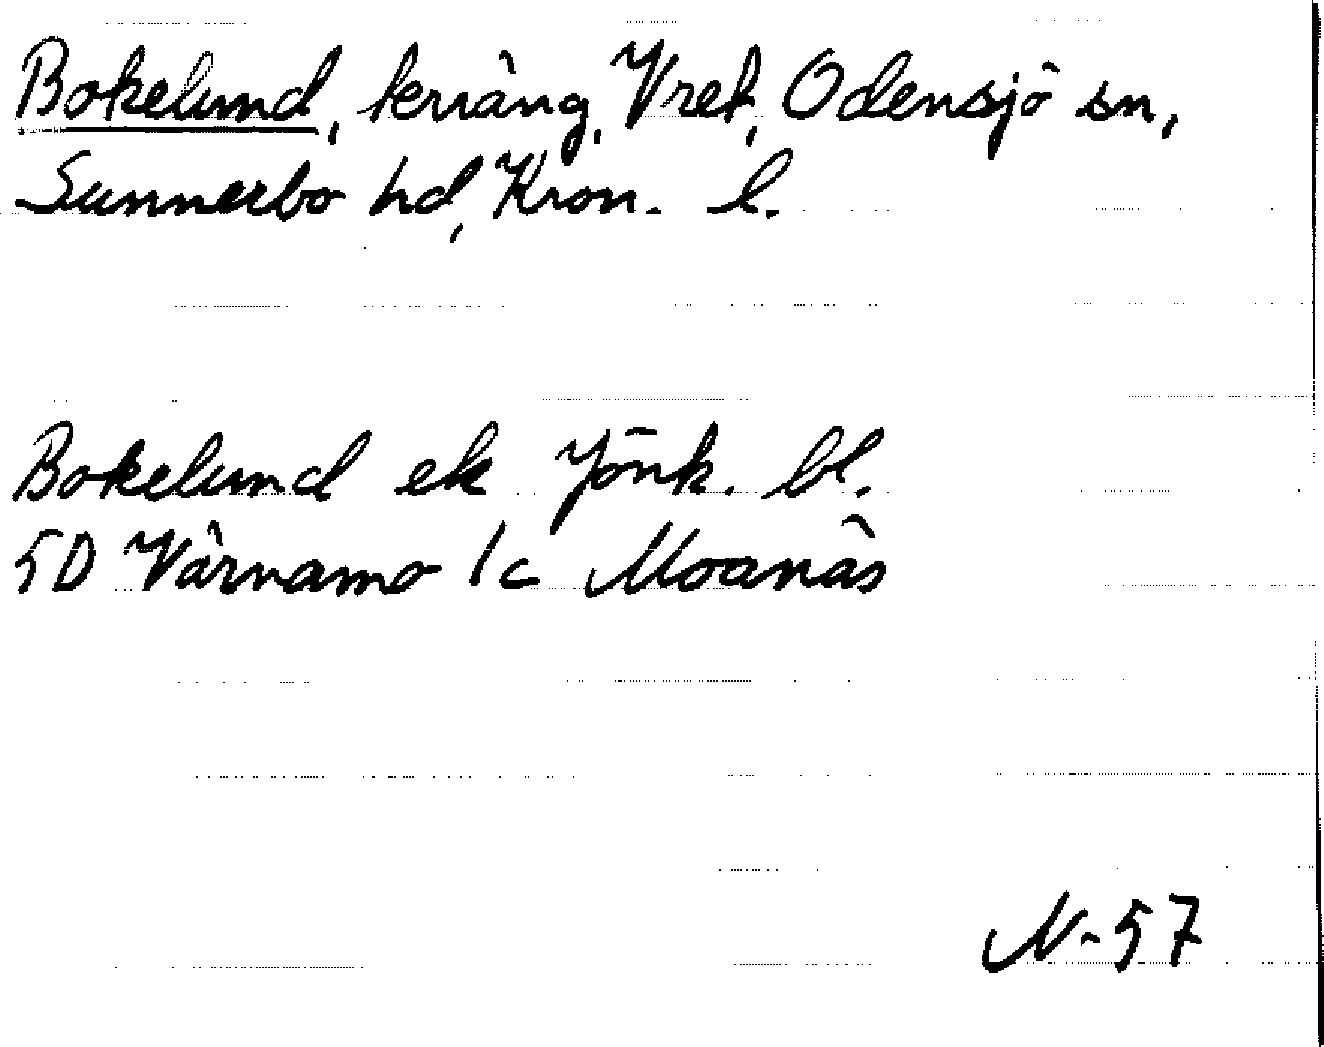 Bokelund, terräng, Vret, Odensjö sn,
Sunnerbo hd, Kron. l.
Bokelund ek Jönk. bl.
5D Värnamo 1c Moanäs
N-57